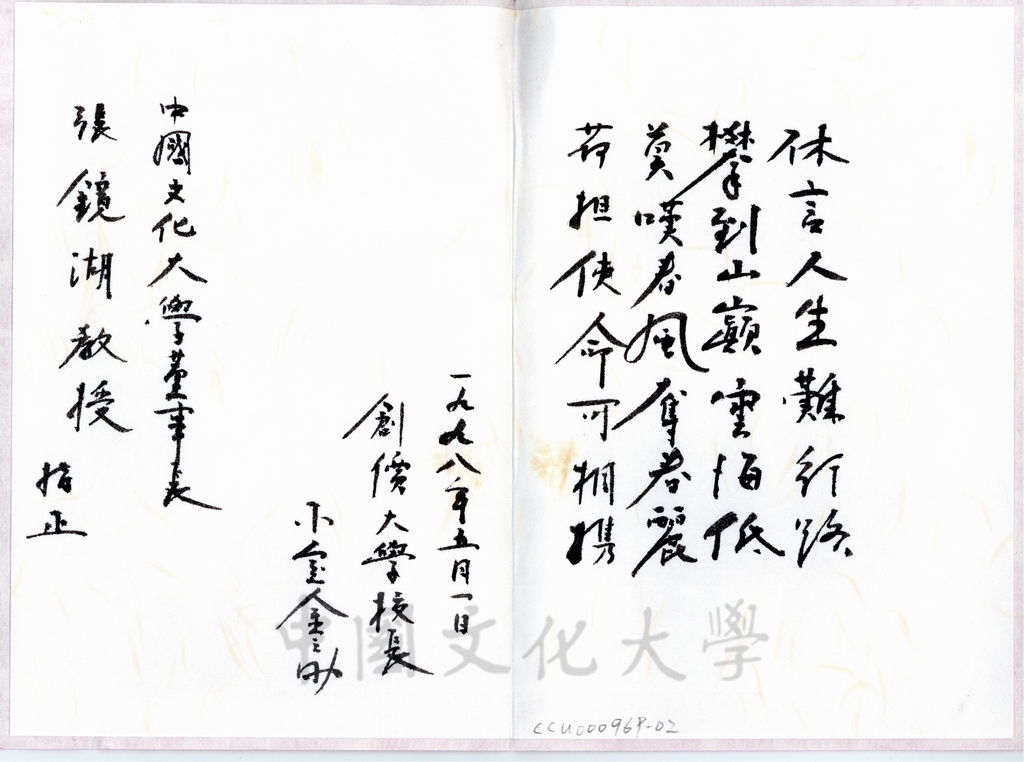 休言人生難行路
攀到山巔雲海低
莫嘆春風奪春麗
荷担使命可相携
一九九八年五月一日
創價大學校長
小室金之助
中國文化大學董事長
張鏡湖教授
指正
中國文化大學
CCU000968-02